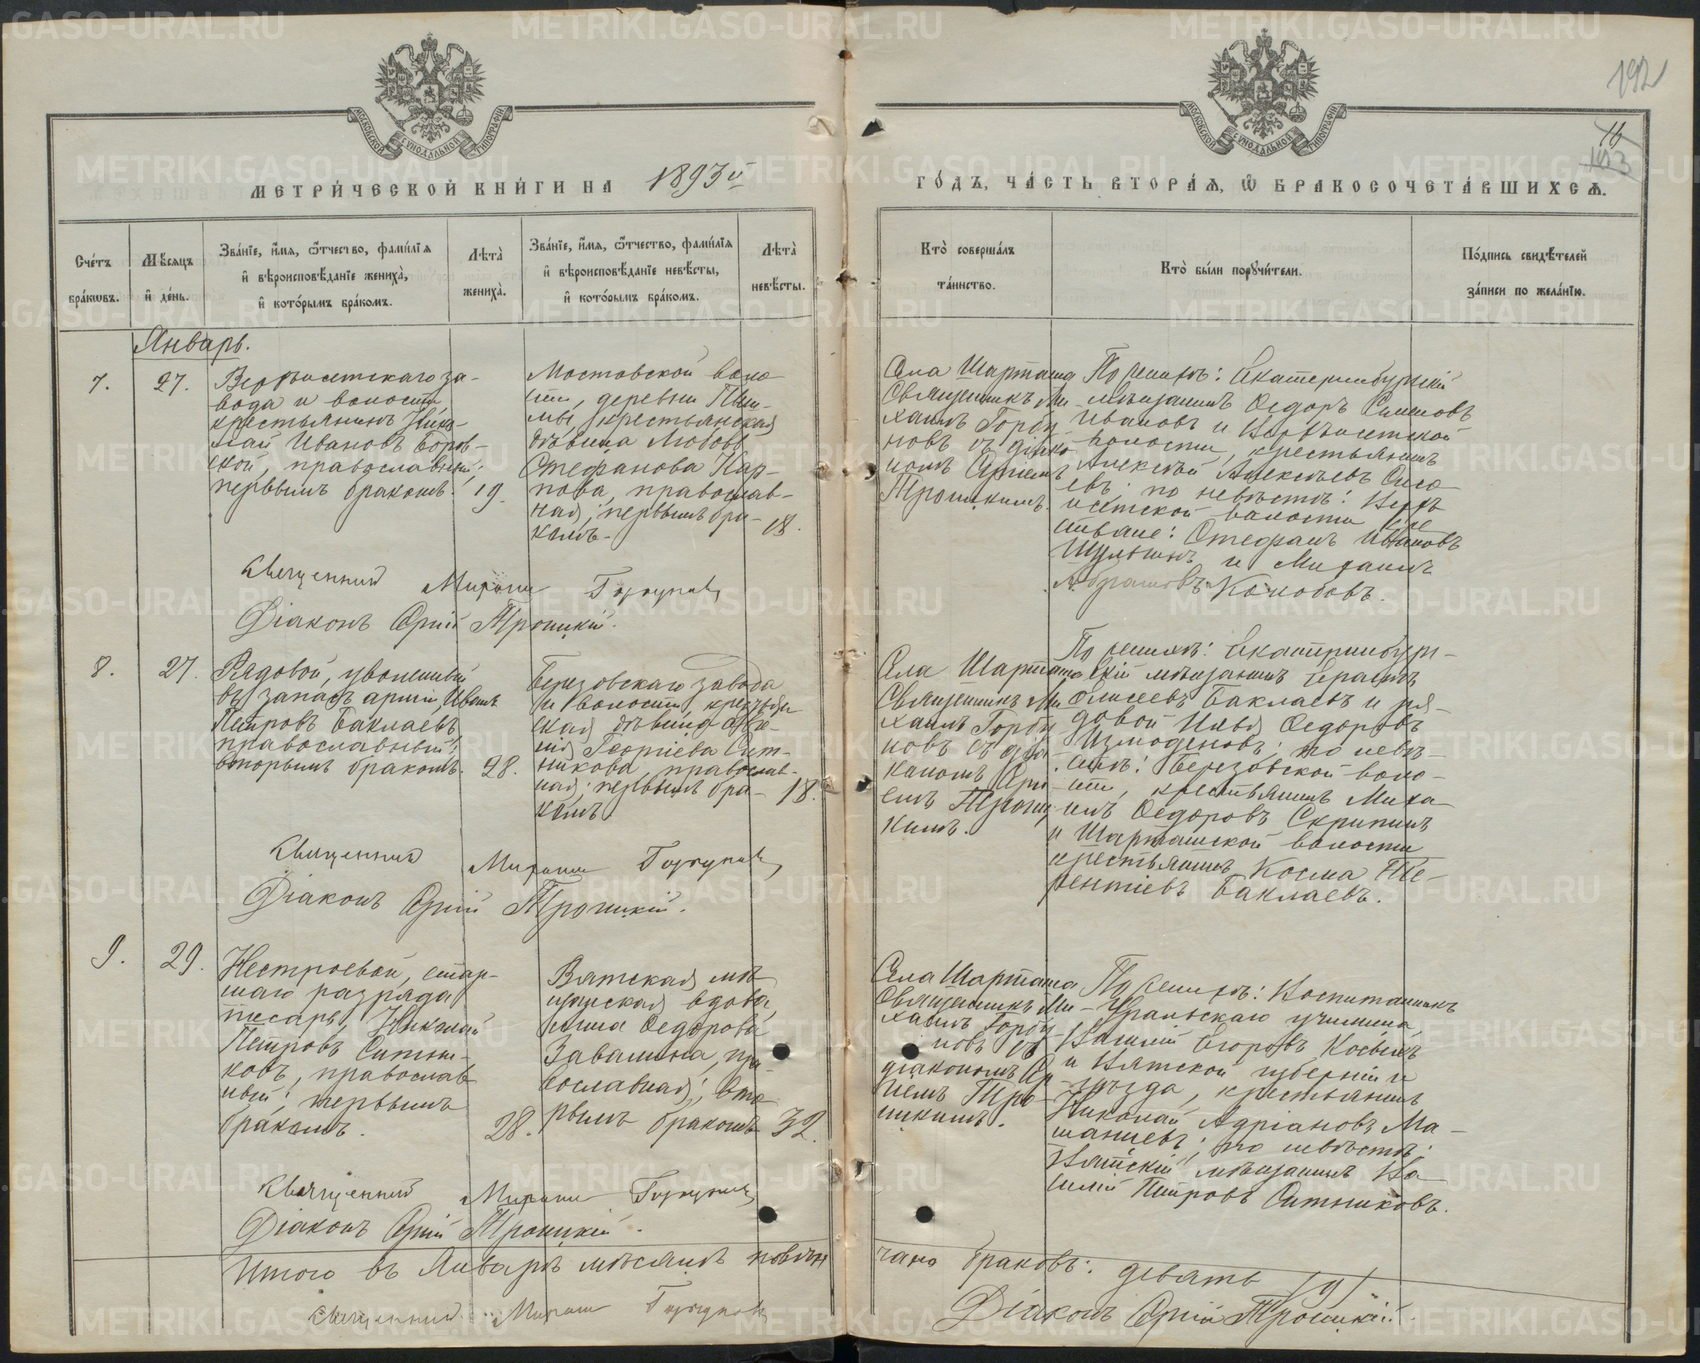 МЕТРИ́ЧЕСКОЙ КНИ́ГИ НА 1893 й
ГО́ДЪ, ЧА́СТЬ ВТОРА́Я, Ѡ҆ БРАКОСОЧЕТА́ВШИХСѦ.
192
16
Сче́тъ бра́кѡвъ.
Мѣ́сяцъ и҆ де́нь.
Зва́нїе, и҆́мѧ, ѻ҆́тчество, фами́лїѧ и҆ вѣроисповѣ́данїе жениха̀, и҆ кото́рымъ бра́комъ.
Лѣта̀ жениха̀.
Зва́нїе, и҆́мѧ, ѻ҆́тчество, фами́лїѧ и҆ вѣроисповѣ́данїе невѣ́сты, и҆ кото́рымъ бра́комъ.
Лѣта̀ невѣ́сты.
Кто̀ соверша́лъ та́инство.
Кто̀ бы́ли порꙋчи́тели.
По́дпись свидѣ́телей за́писи по жела́нїю.
Январь.
7.
27.
Верхъисетскаго за-
вода и волости
крестьянинъ Нико-
лай Ивановъ Боров-
ской, православный;
первымъ бракомъ.
19.
Мостовской воло
сти, деревни Пыш-
мы крестьянская
дѣвица Любовь
Стефанова Кар-
пова, православ-
ная; первымъ бра-
комъ.
18.
Села Шарташа
Священникъ Ми-
хаилъ Горбу
новъ съ діако
номъ
Троицкимъ.
По женихѣ: Екатеринбургскій
мѣщанинъ Ѳедоръ Симовъ
Ивановъ и Верхъисетской
волости, крестьянинъ
Алексѣй Алексѣевъ Сысо
евъ; по невѣстѣ: Верхъ
исетской волости кре
стьяне: Стефанъ Ивановъ
и Михаилъ
Абрамовъ Колобовъ.
Священникъ Михаилъ Горбуновъ
Діаконъ Троицкій.
8.
27.
Рядовой, уволенный
въ запасъ арміи, Иванъ
Петровъ Баклаевъ
православный;
вторымъ бракомъ.
28.
Березовскаго завода
и волости, крестьян
ская дѣвица
Георгіева Сит-
никова, православ-
ная; первымъ бра-
комъ
18.
Села Шарташа
Священникъ Ми
хаилъ Горбу
новъ съ діа
кономъ
Троиц
кимъ.
По женихѣ: Екатеринбург-
скій мѣщанинъ
Елисеевъ Баклаевъ и ря-
довой Илья Ѳедоровъ
Измоденовъ; по невѣ-
стѣ: Березовской воло-
сти, крестьянинъ Миха
илъ Ѳедоровъ Скрипинъ
и Шарташской волости
крестьянинъ Косма Те-
рентіевъ Баклаевъ.
Священникъ Михаилъ Горбуновъ
Діаконъ Троицкій.
9.
29.
Нестроевой, стар-
шаго разряда
писарь, Николай
Петровъ Ситни-
ковъ, православ
ный; первымъ
бракомъ.
28.
Вятская мѣ-
щанская вдова,
Анна Ѳедорова
Завалина, пра-
вославная; вто
рымъ бракомъ
32.
Села Шарташа
Священникъ Ми-
хаилъ Горбу
новъ съ
діакономъ
Тро
ицкимъ.
По женихѣ: Воспитанникъ
Уральскаго училища,
Василій Егоровъ Косыхъ
и Вятской губерніи и
уѣзда, крестьянинъ
Николай Адріановъ Ма-
шанцевъ; по невѣстѣ:
Вятскій мѣщанинъ Ва
силій Петровъ Ситниковъ.
Священникъ Михаилъ Горбуновъ
Діаконъ Троицкій.
Итого въ Январѣ мѣсяцѣ повѣн
чано браковъ: девять /9/
Священникъ Михаилъ Горбуновъ
Діаконъ Троицкій.
METRIKI.GASO-URAL.RU